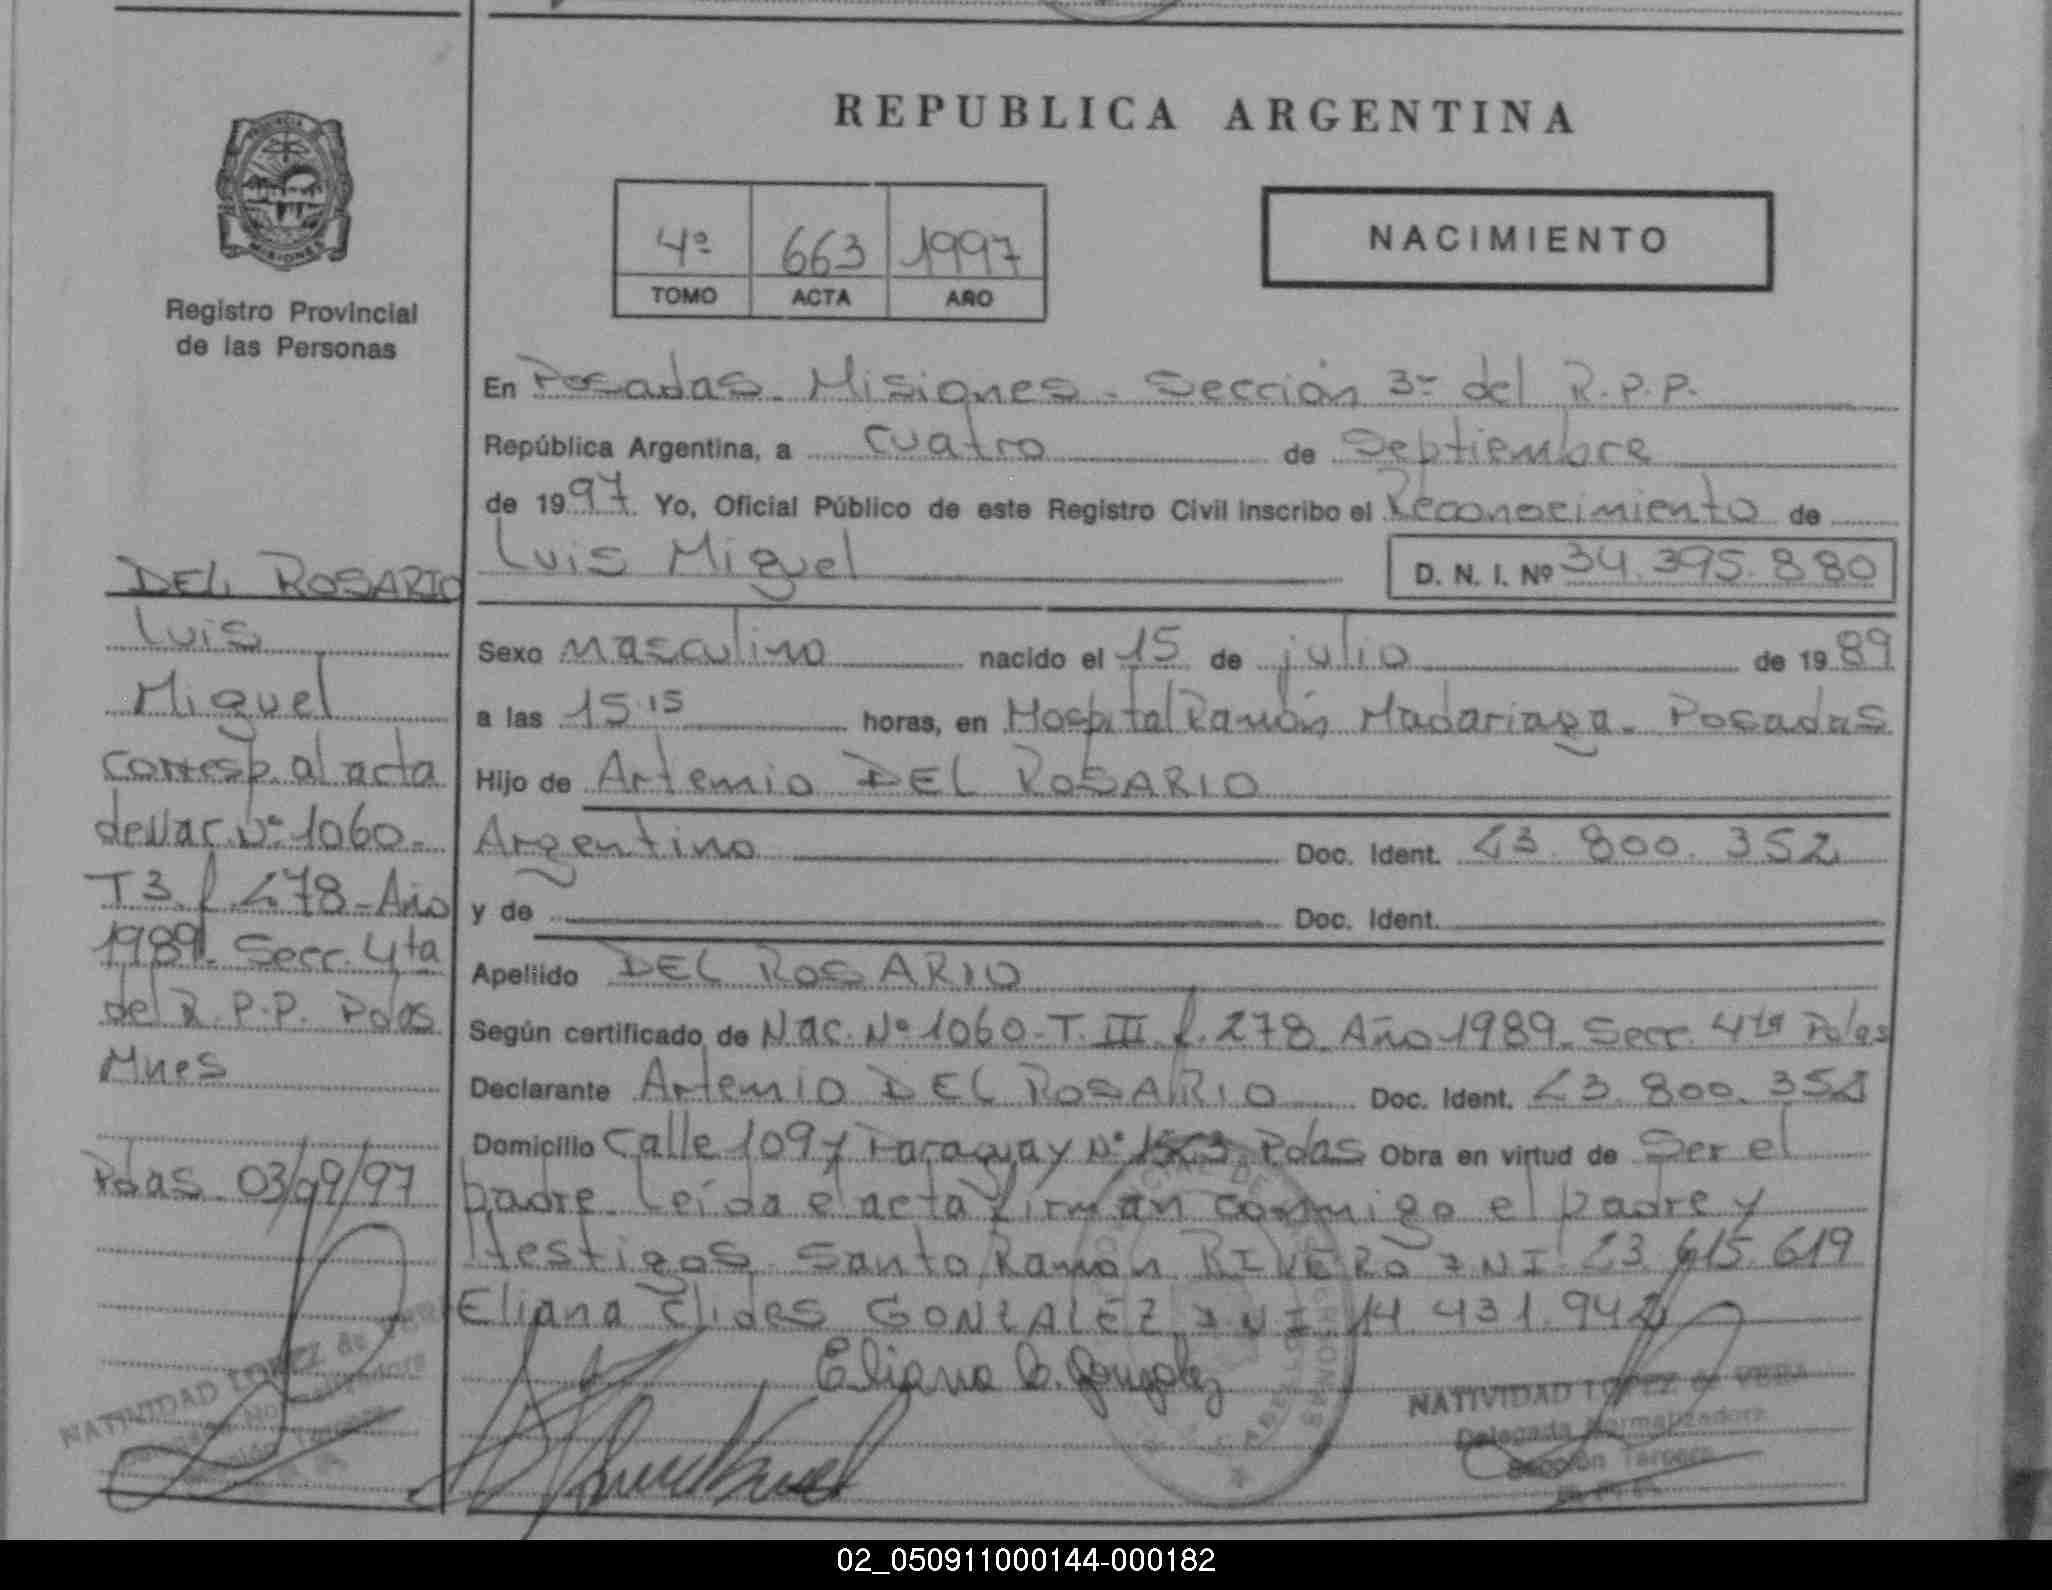 REPUBLICA ARGENTINA
PROVINCIA
MISIONES
Registro Provincial
de las Personas
4º 663 1997
TOMO ACTA AÑO
NACIMIENTO
En Posadas - Misiones - Sección 3ra del R.P.P.
República Argentina, a cuatro de Septiembre
de 1997 Yo, Oficial Público de este Registro Civil inscribo el Reconocimiento de
Luis Miguel D. N. I. Nº 34.395.880
Sexo masculino nacido el 15 de julio de 1989
a las 15.15 horas, en Hospital Ramón Madariaga - Posadas
Hijo de Artemio DEL ROSARIO
Argentino Doc. Ident. 23.800.352
y de Doc. Ident.
Apellido DEL ROSARIO
Según certificado de Nac. Nº 1060 - T. III f. 278 Año 1989 - Secc. 4ta Pdas
Declarante Artemio DEL ROSARIO Doc. Ident. 23.800.352
Domicilio Calle 109 y Paraguay Nº Pdas Obra en virtud de Ser el
padre - Leída el acta firman conmigo el padre y
testigos Santo Ramón RIVERO DNI 23.615.619
Eliana Elides GONZALEZ DNI 14.431.942
NATIVIDAD LOPEZ de VERA
Delegada Normalizadora
Sección Tercera
DEL ROSARIO
Luis
Miguel
Corresp. al acta
de Nac. Nº 1060 -
T3. f. 278 - Año
1989 - Secc. 4ta
del R.P.P. Pdas
Mnes
Pdas 03/09/97
NATIVIDAD LOPEZ de VERA
02_050911000144-000182